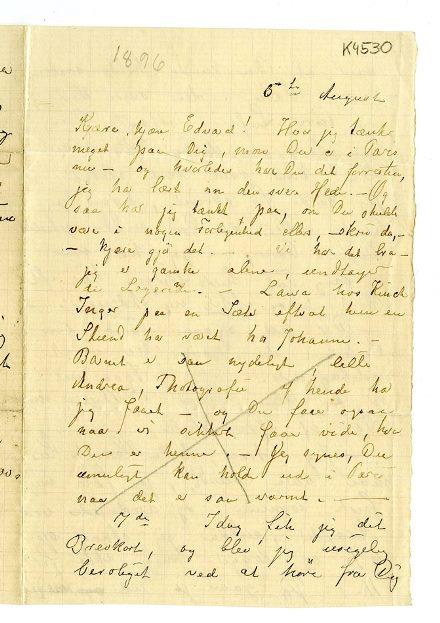 1896
K4530
5te August
Kjære, kjære Edvard! Hvor jeg tænker
meget paa Dig, mon Du er i Paris
nu – og hvorledes har Du det forresten,
jeg har læst om den svære Hede. – Og
saa har jeg tænkt paa, om Du skulde
være i nogen Forlegenhed eller, – skriv da, –
– kjære gjø det. – Vi har det bra –
jeg er ganske alene, undtagen
de Logerende. – Laura hos Kinck
Inger paa en Sæter efterat hun en
Stund har været hos Johanne. –
Barnet er saa nydeligt, lille
Andrea, Photografie af hende har
jeg faaet – og Du faar ogsaa
naar vi sikkert faar vide, hvor
Du er henne. – Jeg synes, Du
umuligt kan holde ud i Paris
naar det er saa varmt. –
7de Idag fik jeg dit
Brevkort, og blev jeg usigelig
beroliget ved at høre fra Dig